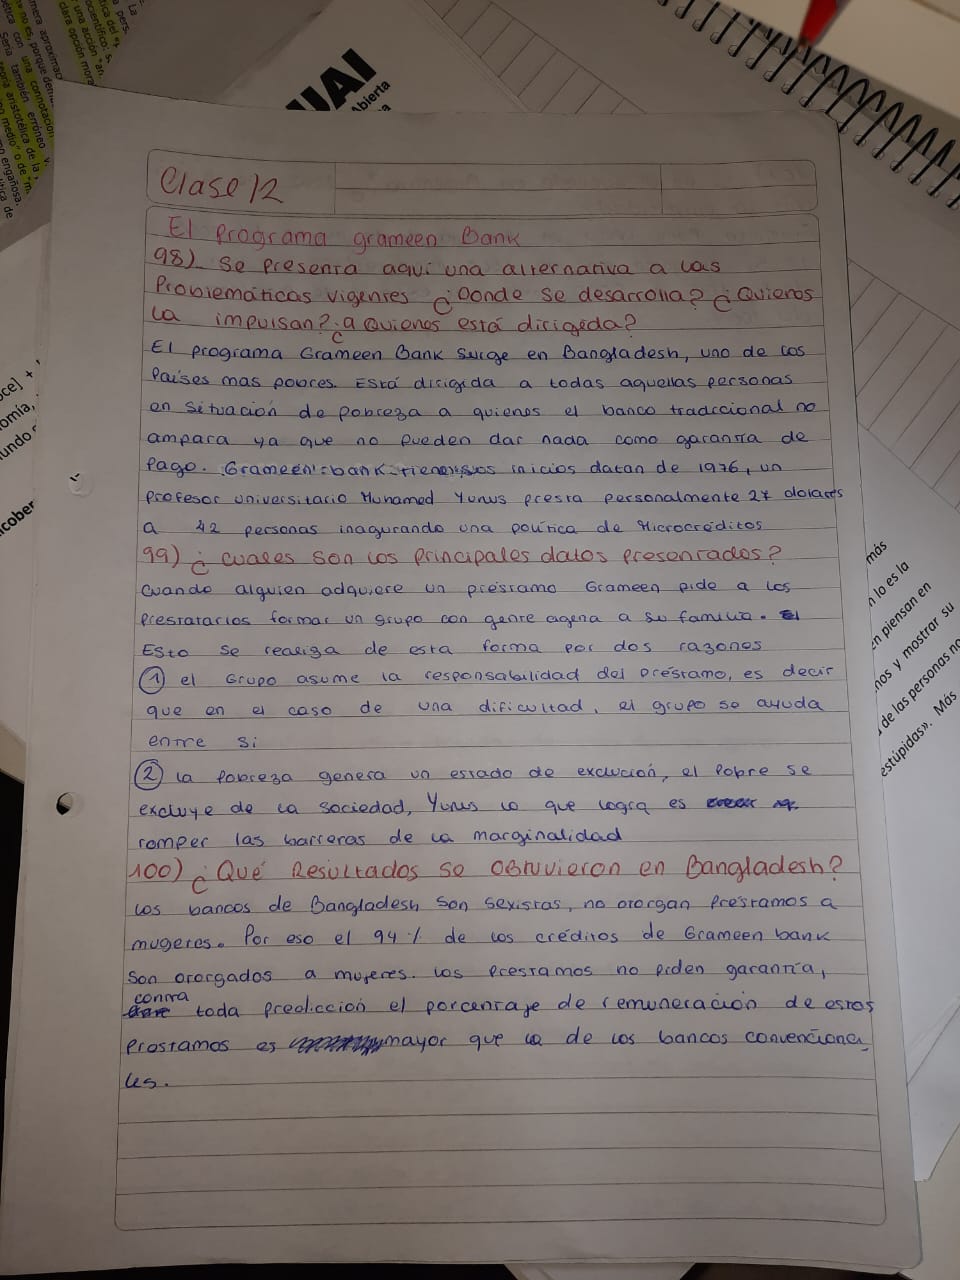 Clase 12
El Programa grameen Bank
98) Se Presenta aquí una alternativa a las
Problemáticas vigentes ¿Donde se desarrolla? ¿Quienes
la impulsan? ¿a Quienes está dirigida?
El programa Grameen Bank surge en Bangladesh, uno de los
Países mas pobres. Está dirigida a todas aquellas personas
en situación de pobreza a quienes el banco tradicional no
ampara ya que no pueden dar nada como garantía de
Pago. Grameen bank inicios datan de 1976, un
profesor universitario Muhamed Yunus presta personalmente 27 dolares
a 42 personas inagurando una política de Microcréditos
99) ¿Cuales son los principales datos presentados?
Cuando alguien adquiere un préstamo Grameen pide a los
Prestatarios formar un grupo con gente agena a su familia. El
Esto se realiza de esta forma por dos razones
① el Grupo asume la responsabilidad del préstamo, es decir
que en el caso de una dificultad, el grupo se ayuda
entre si
② la Pobreza genera un estado de exclución, el Pobre se
excluye de la sociedad, Yunus lo que logra es
romper las barreras de la marginalidad
100) ¿Qué Resultados se Obtuvieron en Bangladesh?
Los bancos de Bangladesh son sexistas, no otorgan Prestamos a
mugeres. Por eso el 94% de los créditos de Grameen bank
son otorgados a mujeres. Los Prestamos no piden garantía,
contra
toda predicción el porcentaje de remuneración de estos
Prestamos es mayor que la de los bancos convenciona
les.
UAI
bierta
más
n lo es la
en piensan en
nos y mostrar su
de las personas no
estúpidas». Más
oce] +
omía,
undo
cober